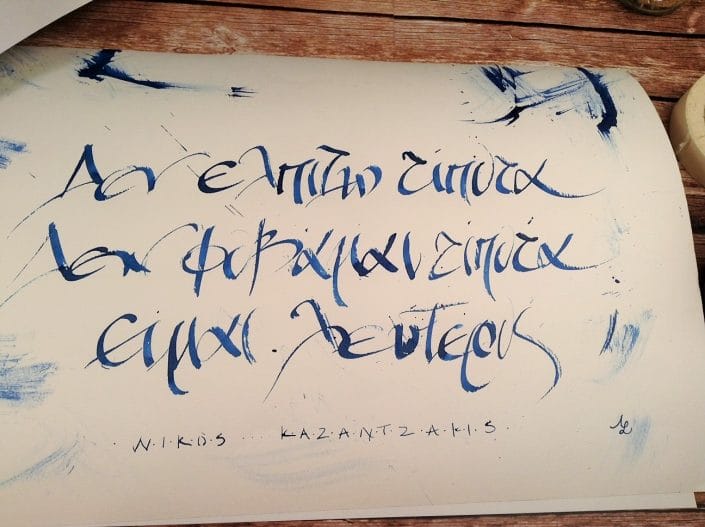 Δεν ελπιζω τίποτα
Δεν φοβάμαι τίποτα
είμαι λευτερος
·N·I·K·O·S··· KAZANTZAKIS·